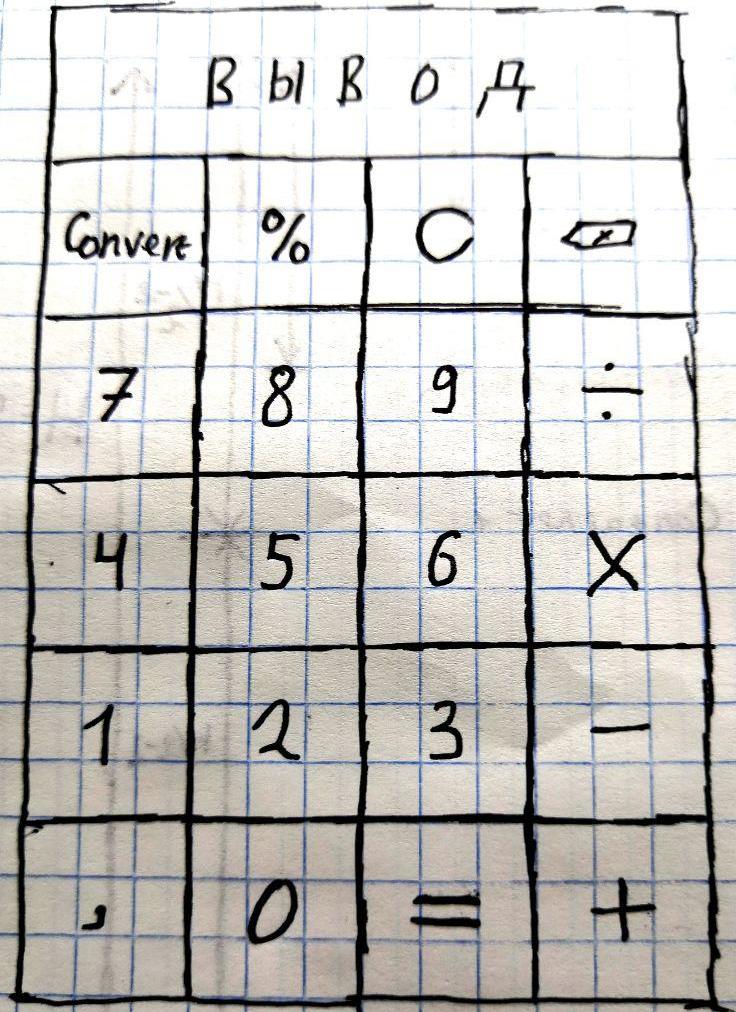 ВЫВОД
Convert % C ⌫
7 8 9 ÷
4 5 6 ×
1 2 3 −
, 0 = +